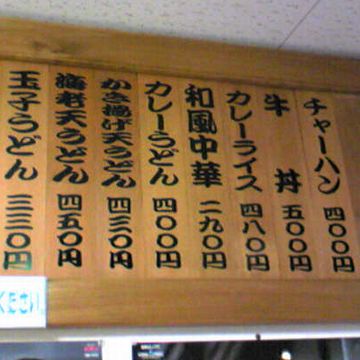 チャーハン 四〇〇円
牛丼 五〇〇円
カレーライス 四八〇円
和風中華 二九〇円
カレーうどん 四〇〇円
かき揚げ天うどん 四三〇円
海老天うどん 四五〇円
玉子うどん 三三〇円
ください